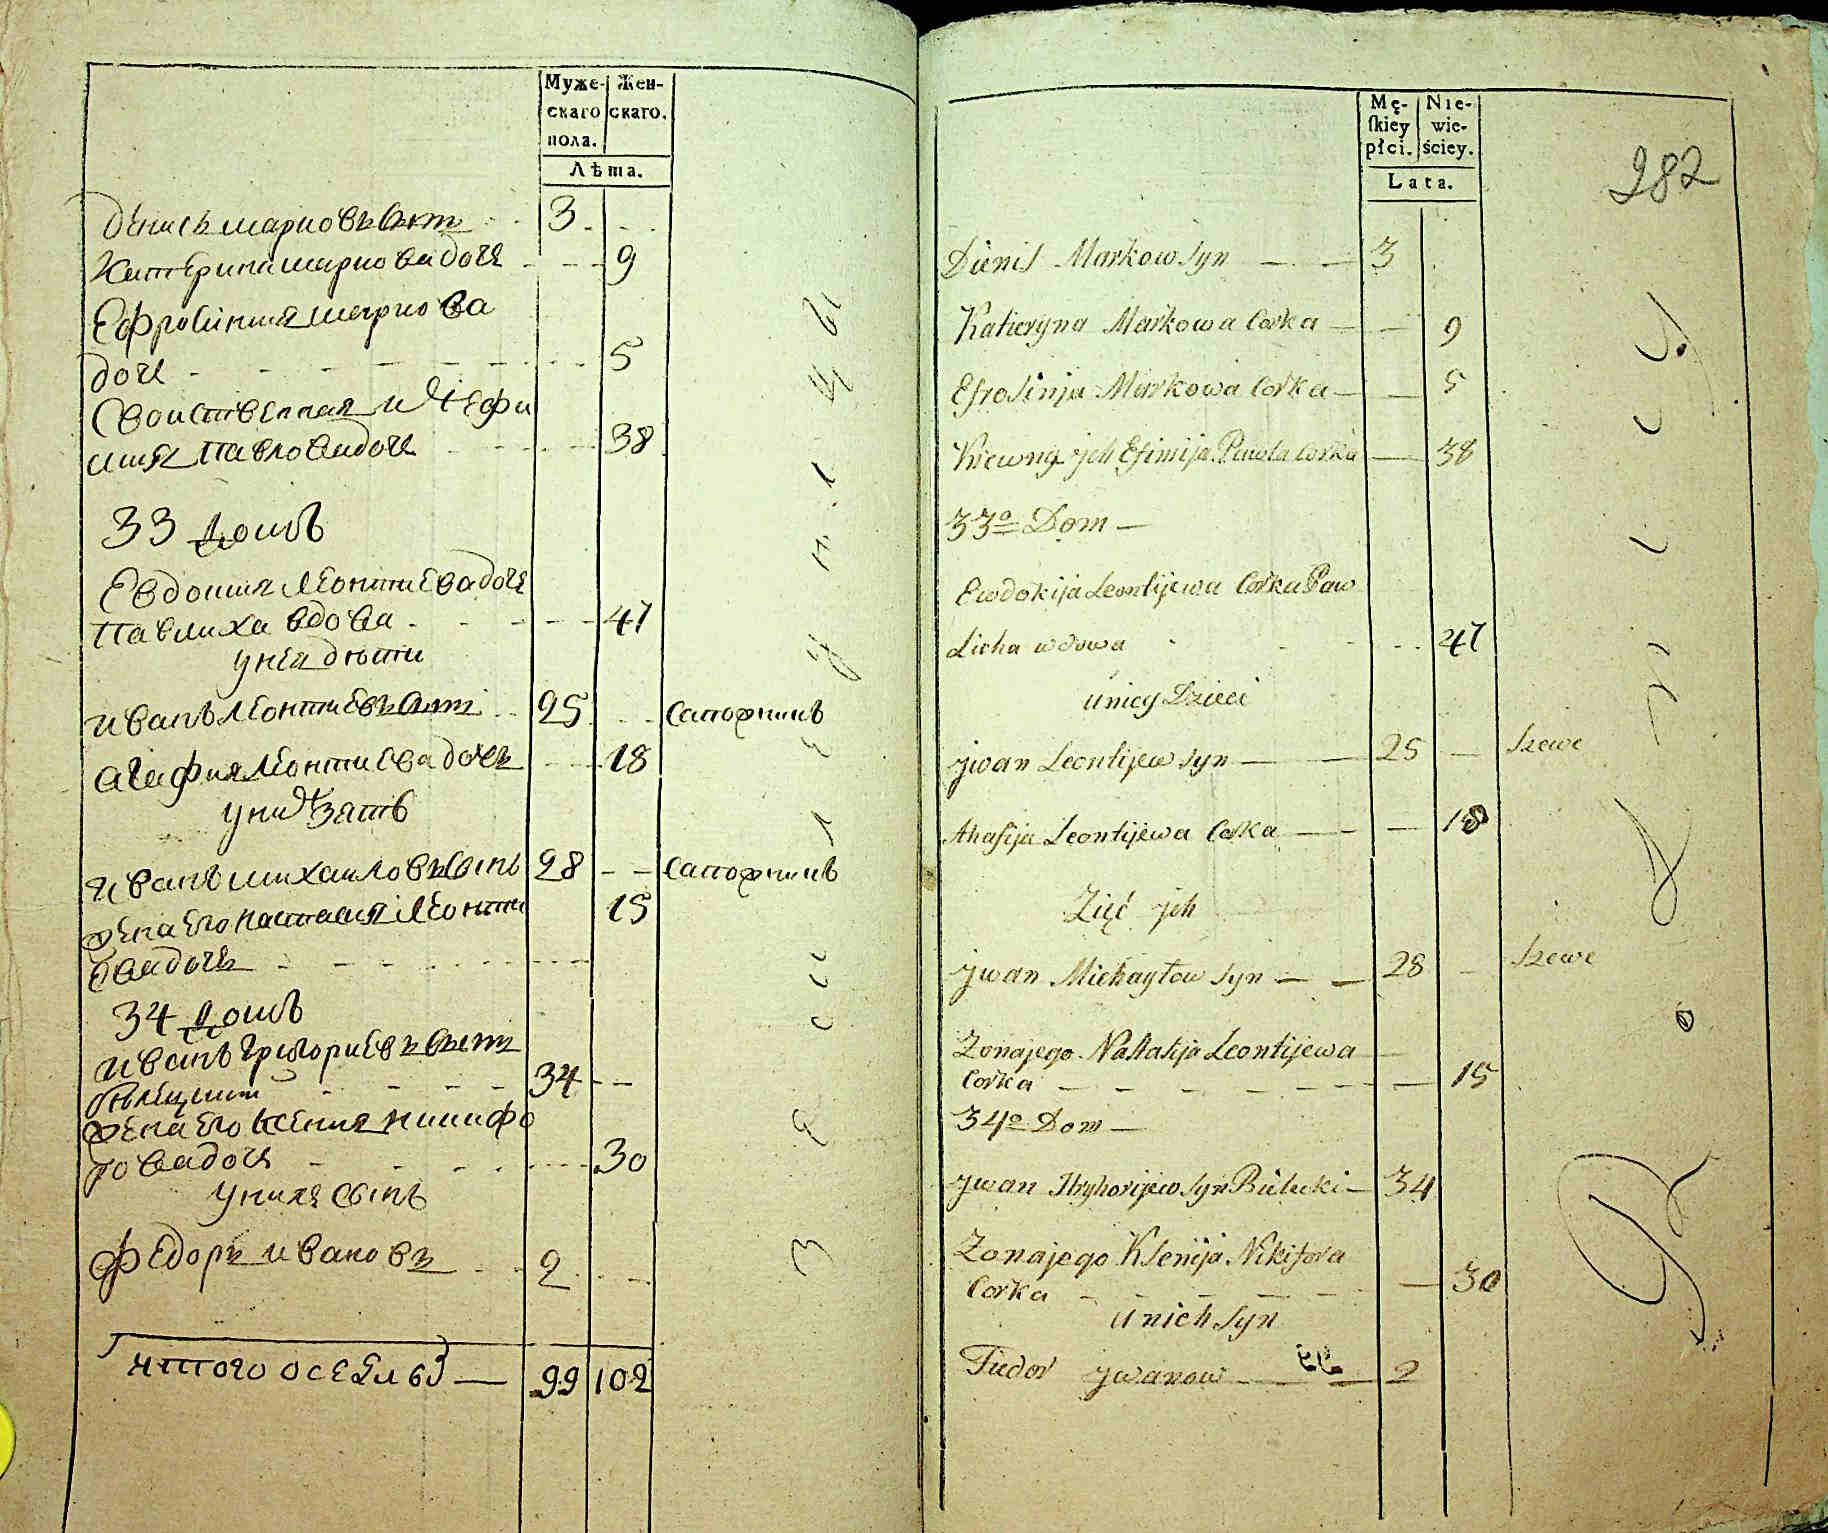 Муже- Жен-
скаго скаго.
пола.
Лѣта.
Денисъ марковъ сынъ 3
Катерина маркова дочь 9
Ефросиния маркова
дочь 5
Свойственная ихъ Ефи
мия Павлова дочь 38
33 Домъ
Евдокия Леонтиева дочь
Павлиха вдова 47
у нея дѣти
иванъ Леонтиевъ сынъ 25 сапожникъ
агафия Леонтиева дочь 18
у них зять
иванъ михаиловъ сынъ 28 сапожникъ
жена его настасия Леонти
ева дочь 15
34 домъ
иванъ григориевъ сынъ
34
жена его ксения никифо
рова дочь 30
у них сынъ
Федоръ ивановъ 2
итого осебъ 99 102
Mę- Nie-
ſkiey wie-
płci. ściey.
Lata.
282
Dienis Markow syn 3
Katieryna Markowa Corka 9
Efrosinja Markowa Corka 5
Krewna jch Efimija Pawła Corka 38
33o Dom
Ewdokija Leontijewa Corka Paw
Licha wdowa 47
u niey Dzieci
jwan Leontijew syn 25 Szewc
Ahafija Leontijewa Corka 18
Zięć jch
jwan Michayłow syn 28 Szewc
Zonajego Nastasija Leontijewa
Corka 15
34o Dom
jwan Hryhorijew syn Bielecki 34
Zonajego Ksenija Nikifora
Corka 30
u nich syn
Fiedor jwanow 2